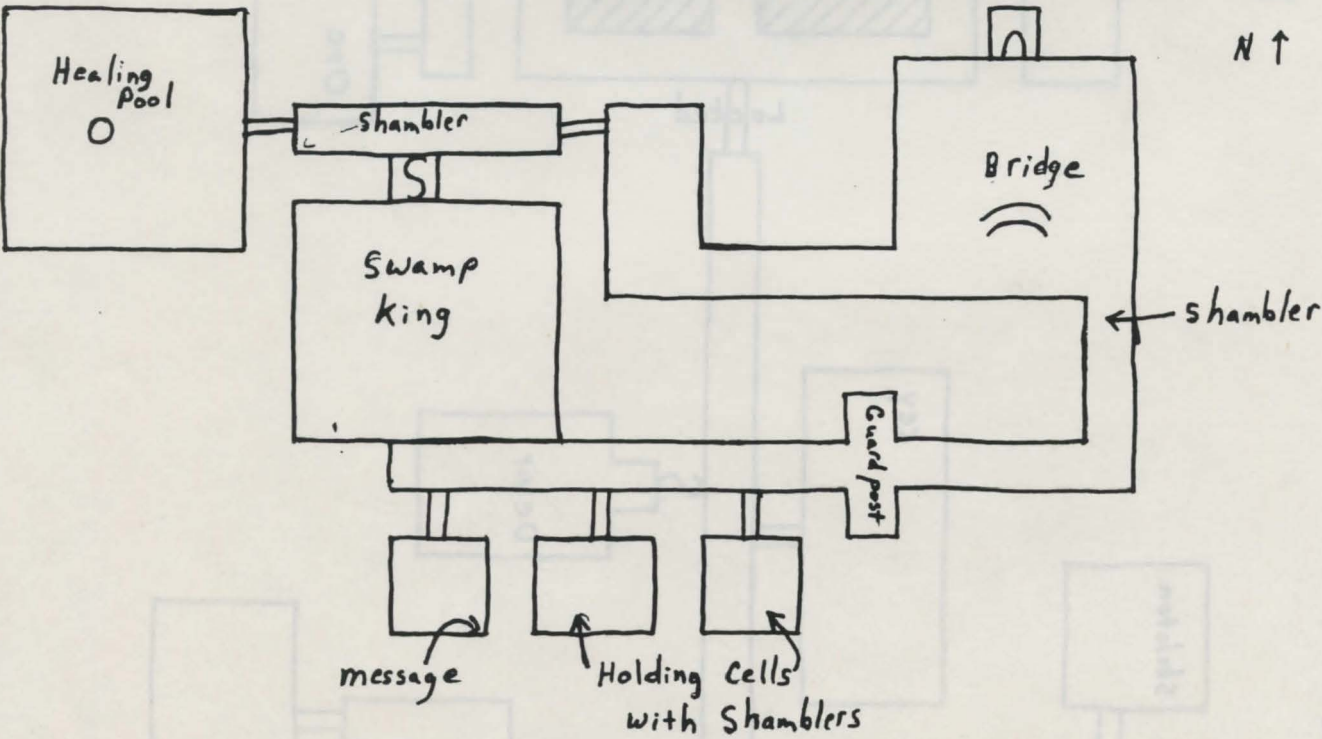 Healing
Pool
Shambler
N ↑
Bridge
S
Swamp
King
Shambler
Guard post
message
Holding Cells
with Shamblers